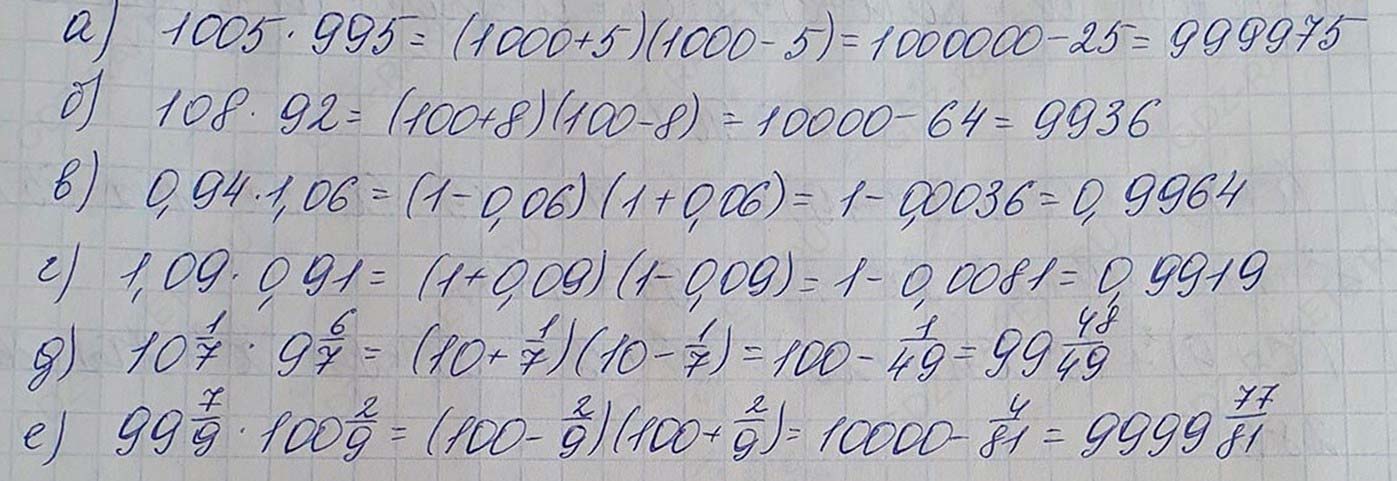 а) 1005 · 995 = (1000+5)(1000-5) = 1000000 - 25 = 999975
б) 108 · 92 = (100+8)(100-8) = 10000 - 64 = 9936
в) 0,94 · 1,06 = (1-0,06)(1+0,06) = 1 - 0,0036 = 0,9964
г) 1,09 · 0,91 = (1+0,09)(1-0,09) = 1 - 0,0081 = 0,9919
д) 10 1/7 · 9 6/7 = (10 + 1/7)(10 - 1/7) = 100 - 1/49 = 99 48/49
е) 99 7/9 · 100 2/9 = (100 - 2/9)(100 + 2/9) = 10000 - 4/81 = 9999 77/81